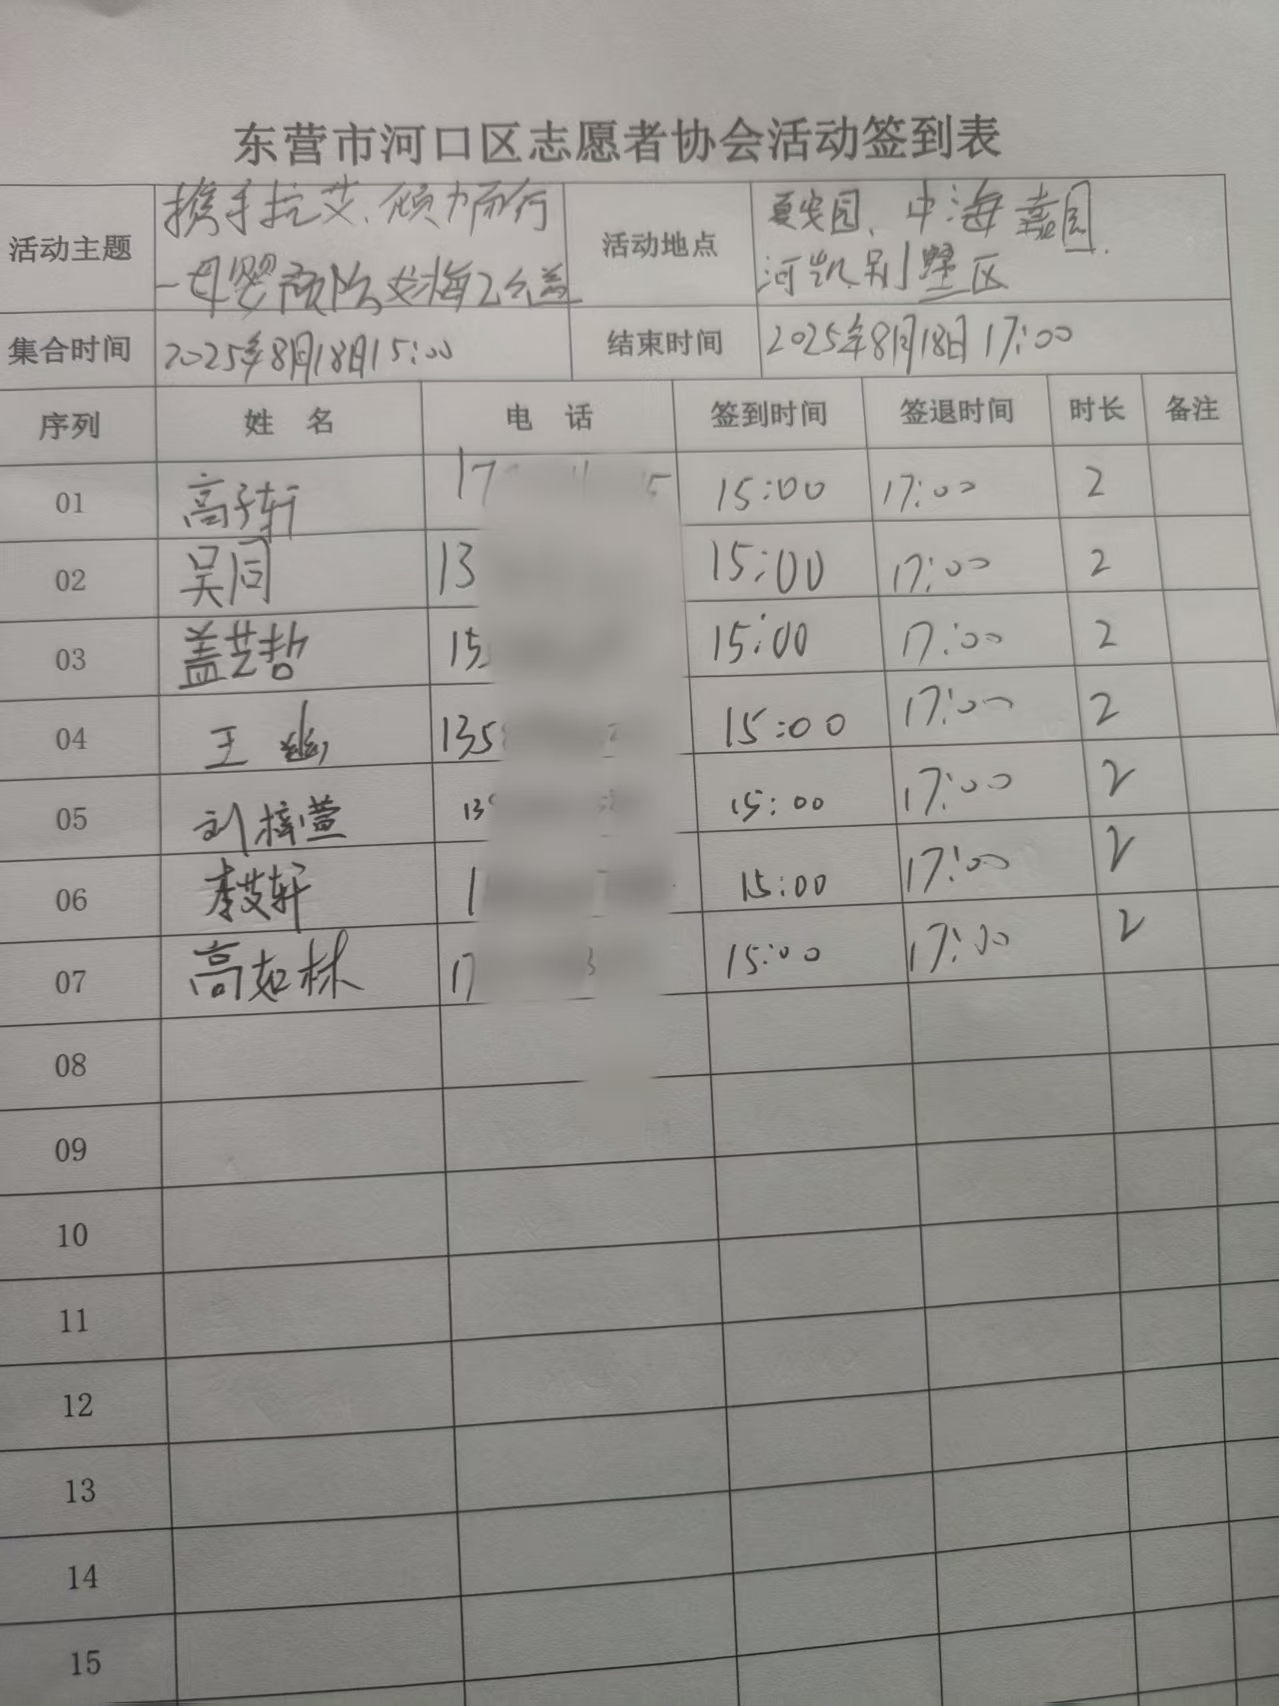 东营市河口区志愿者协会活动签到表
活动主题 携手抗艾、倾力而行 活动地点 夏安园、中海嘉园.
一母婴预防
河凯别墅区
集合时间 2025年8月18日15:00 结束时间 2025年8月18日17:00
序列 姓 名 电 话 签到时间 签退时间 时长 备注
01 高子轩 17 5 15:00 17:00 2
02 吴同 13 15:00 17:00 2
03 盖艺哲 15 15:00 17:00 2
04 王 135 15:00 17:00 2
05 刘梓萱 13 15:00 17:00 2
06 李艾轩 1 15:00 17:00 2
07 高如林 17 3 15:00 17:00 2
08
09
10
11
12
13
14
15